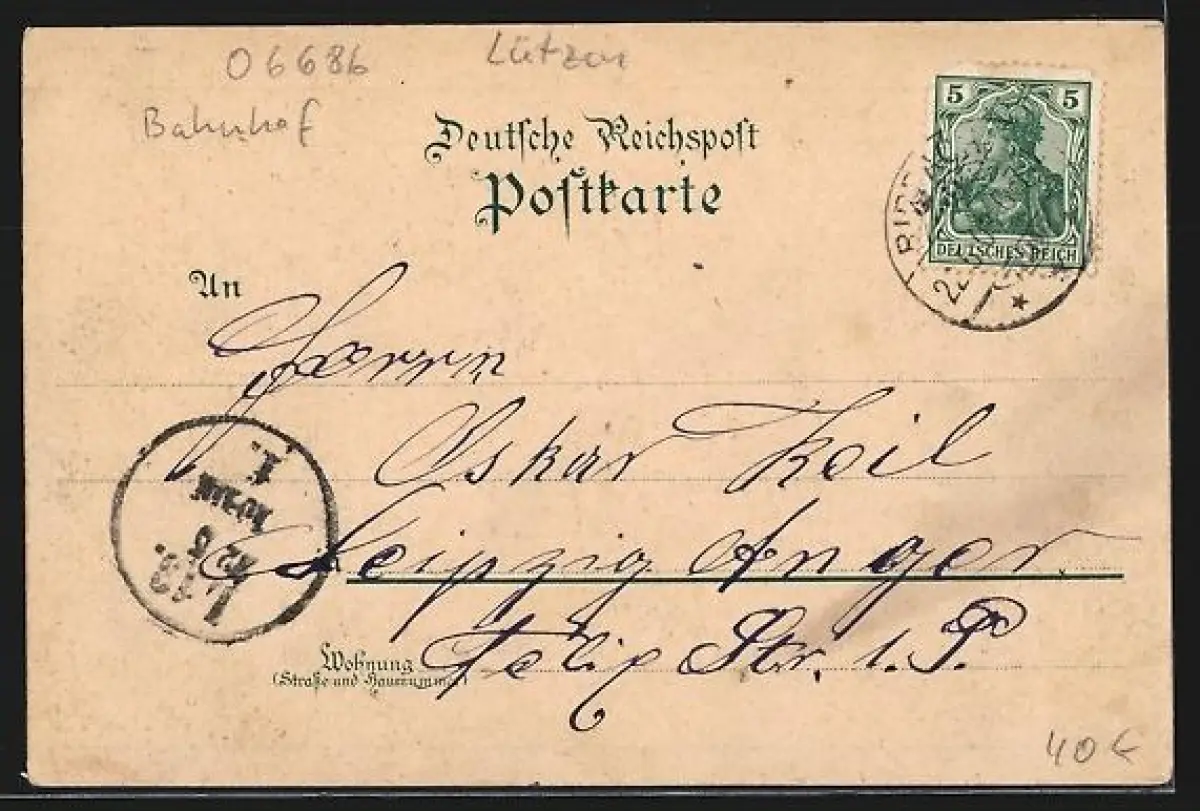 06686 Lützen
Bahnhof
Deutsche Reichspost
Postkarte
5 5
DEUTSCHES REICH
An
Herrn
Oskar Keil
Leipzig Anger.
Wohnung
(Straße und Hausnummer)
Felix Str. 1. P.
40 €